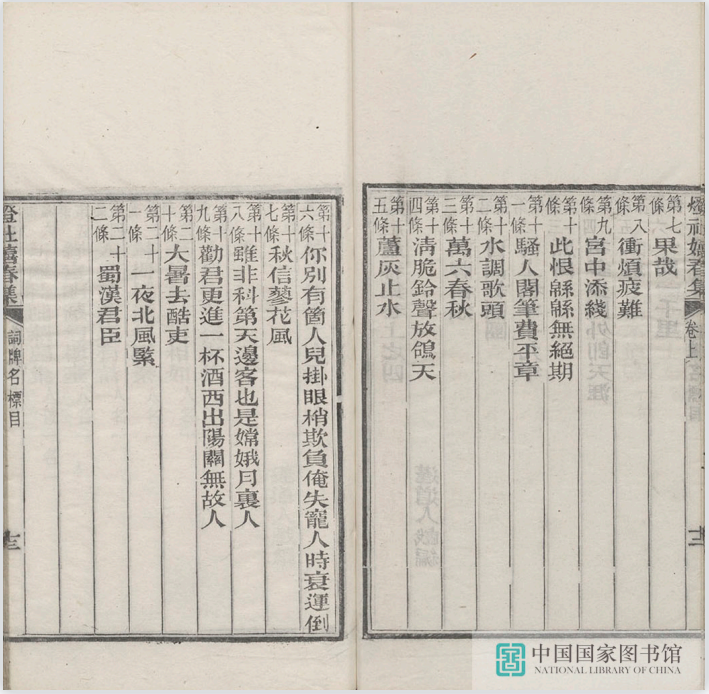 燈社嬉春集
卷上
第七條 果哉
第八條 衝煩疲難
第九條 宮中添綫
第十條 此恨緜緜無絕期
第十一條 騷人閣筆費平章
第十二條 水調歌頭
第十三條 萬六春秋
第十四條 清脆鈴聲放鴿天
第十五條 蘆灰止水
第十六條 你別有箇人兒掛眼梢欺負俺失寵人時衰運倒
第十七條 秋信蓼花風
第十八條 雖非科第天邊客也是嫦娥月裏人
第十九條 勸君更進一杯酒西出陽關無故人
第二十條 大暑去酷吏
第二十一條 一夜北風緊
第二十二條 蜀漢君臣
燈社嬉春集
詞牌名標目
十三
中国国家图书馆
NATIONAL LIBRARY OF CHINA